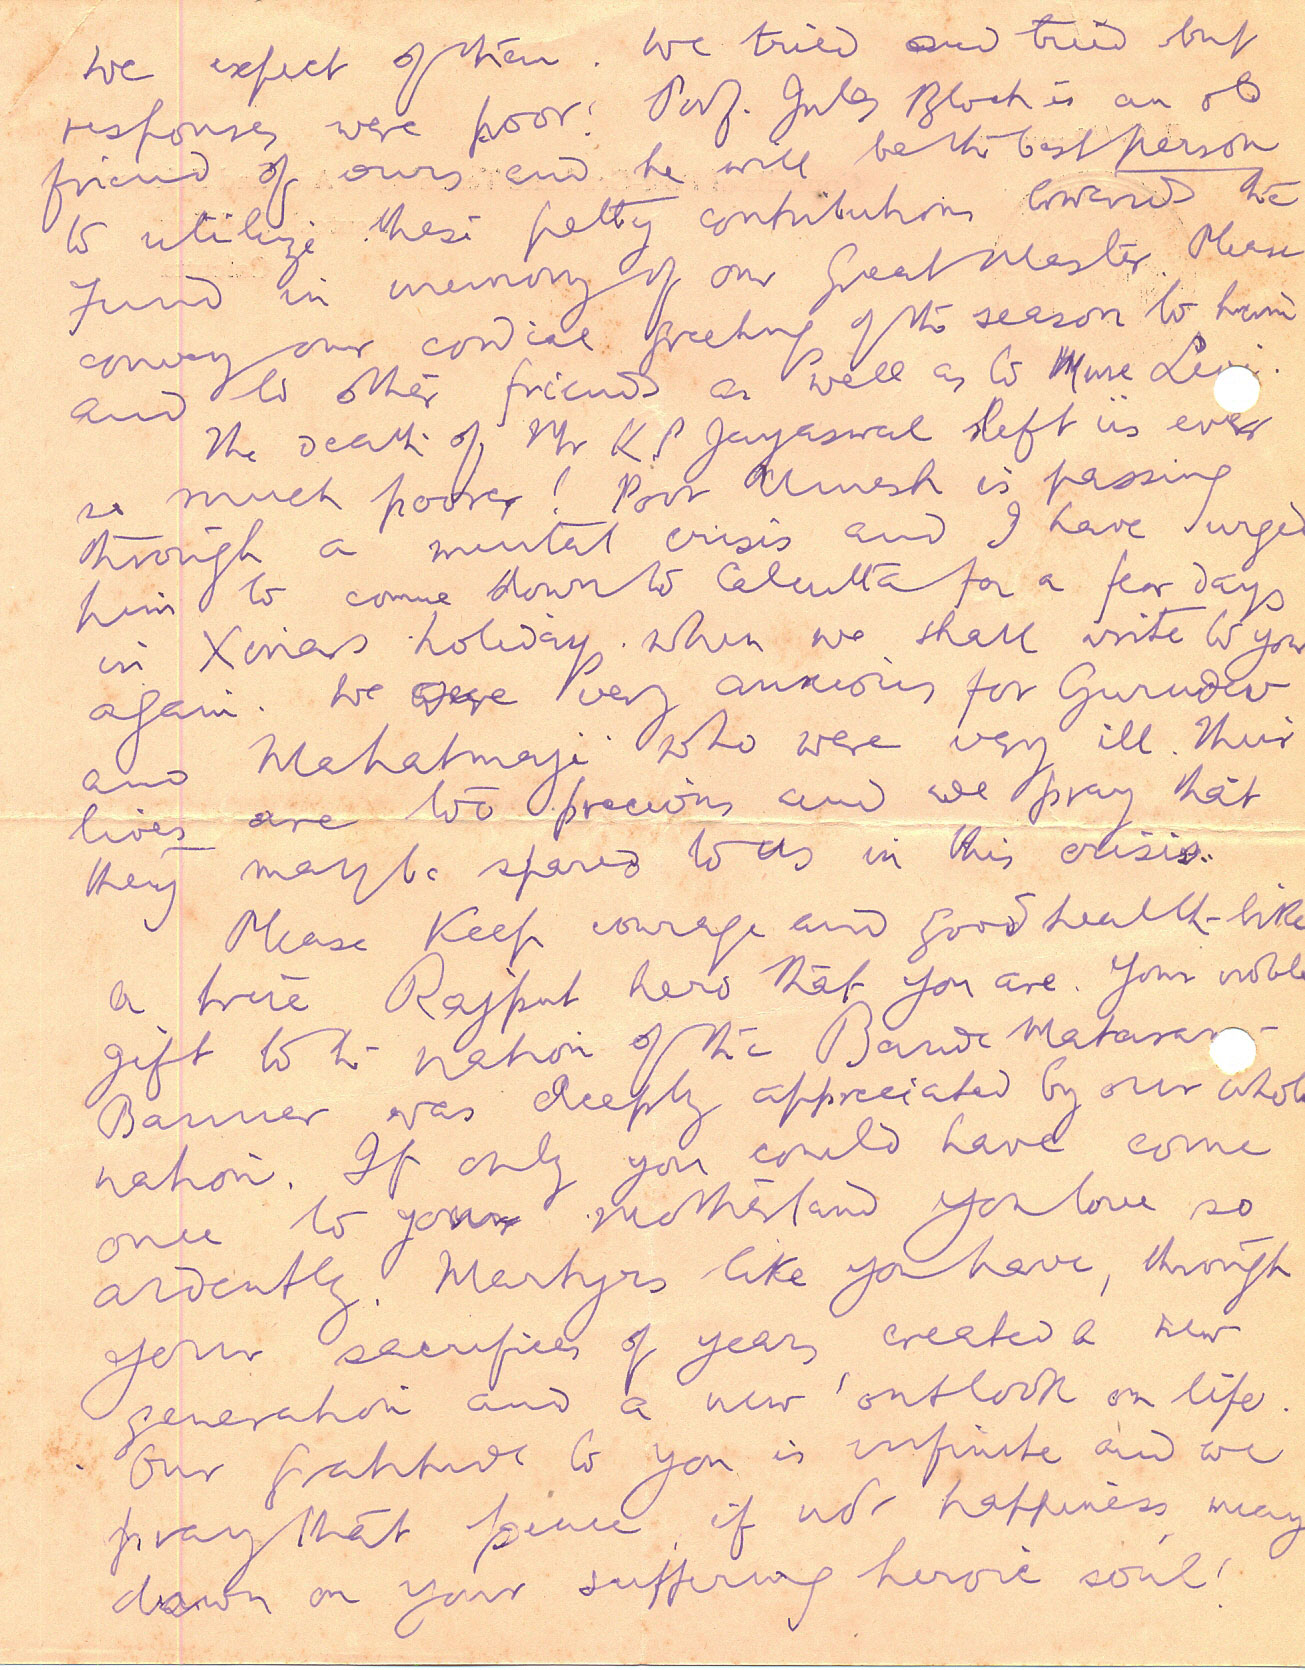 we expect of them. We tried and tried but
responses were poor! Prof. Jules Bloch is an old
friend of ours and he will be the best person
to utilize these petty contributions towards the
Fund in memory of our Great Master. Please
convey our cordial greeting of the season to him
and to other friends as well as to Mme Levi.
The death of Mr K.P Jayaswal left us ever
so much poorer! Poor Umesh is passing
through a mental crisis and I have urged
him to come down to Calcutta for a few days
in Xmas holiday when we shall write to you
again. We were very anxious for Gurudev
and Mahatmaji who were very ill. Their
lives are too precious and we pray that
they may be spared to us in this crisis.
Please Keep courage and good health - like
a true Rajput hero that you are. Your noble
gift to the nation of the Bande Mataram-
Banner was deeply appreciated by our whole
nation. If only you could have come
once to your motherland you love so
ardently. Martyrs like you have, through
your sacrifices of years created a new
generation and a new outlook on life.
Our gratitude to you is infinite and we
pray that peace, if not happiness, may
dawn on your suffering heroic soul!